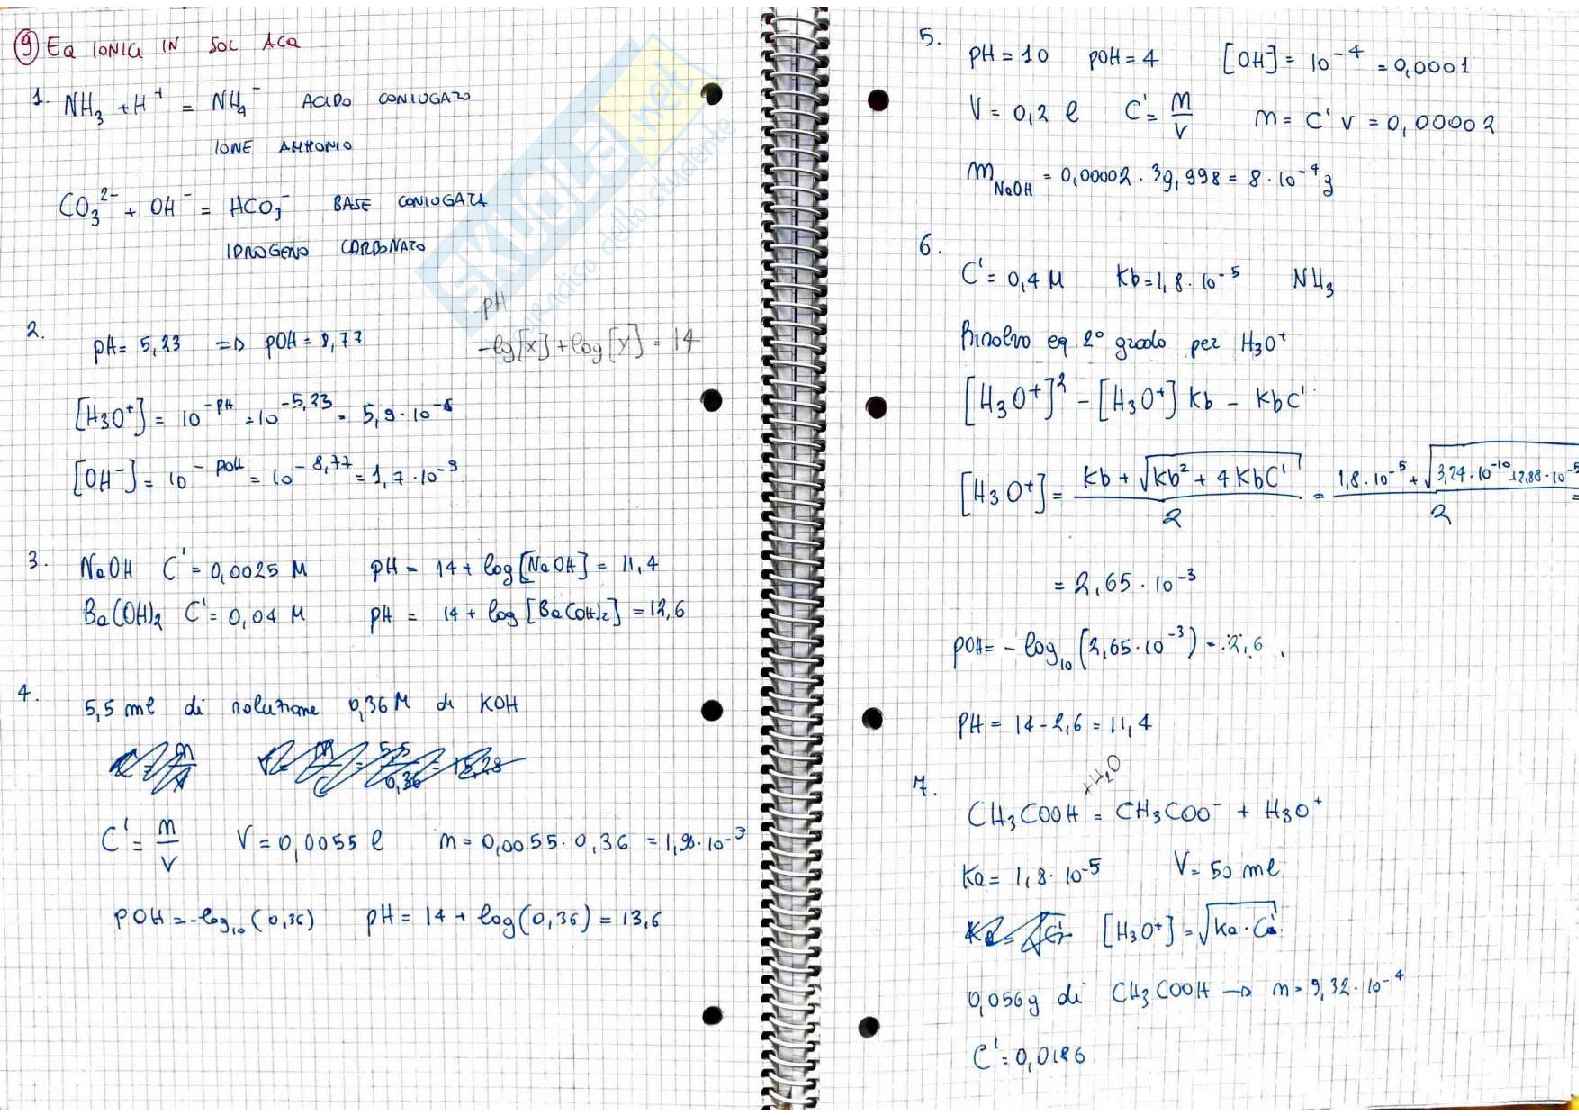 ⑨ EQ IONICI IN SOL ACQ
1. NH₃ + H⁺ = NH₄⁻ ACIDO CONIUGATO
IONE AMMONIO
CO₃²⁻ + OH⁻ = HCO₃⁻ BASE CONIUGATA
IDROGENO CARBONATO
2. pH
pH = 5,23 => pOH = 8,77 -lg[x] + log[y] = 14
[H₃O⁺] = 10^-pH = 10^-5,23 = 5,9 · 10^-6
[OH⁻] = 10^-pOH = 10^-8,77 = 1,7 · 10^-9
3. NaOH C' = 0,0025 M pH = 14 + log[NaOH] = 11,4
Ba(OH)₂ C' = 0,04 M pH = 14 + log[Ba(OH)₂] = 12,6
4. 5,5 ml di soluzione 0,36 M di KOH
C' = m/V V = 0,0055 l m = 0,0055 · 0,36 = 1,98 · 10^-3
pOH = -log₁₀(0,36) pH = 14 + log(0,36) = 13,6
5. pH = 10 pOH = 4 [OH] = 10^-4 = 0,0001
V = 0,2 l C' = m/V m = C' V = 0,00002
m NaOH = 0,00002 · 39,998 = 8 · 10^-4 g
6. C' = 0,4 M Kb = 1,8 · 10^-5 NH₃
Risolvo eq 2° grado per H₃O⁺
[H₃O⁺]² - [H₃O⁺] Kb - KbC'
[H₃O⁺] = (Kb + √(Kb² + 4KbC'))/2 = (1,8 · 10^-5 + √(3,24 · 10^-10 + 2,88 · 10^-5))/2 =
= 2,65 · 10^-3
pOH = -log₁₀(2,65 · 10^-3) = 2,6
pH = 14 - 2,6 = 11,4
7. +H₂O
CH₃COOH = CH₃COO⁻ + H₃O⁺
Ka = 1,8 · 10^-5 V = 50 ml
[H₃O⁺] = √(Ka · Ca')
0,056 g di CH₃COOH → m = 9,32 · 10^-4
C' = 0,0186
SKUOLA.net